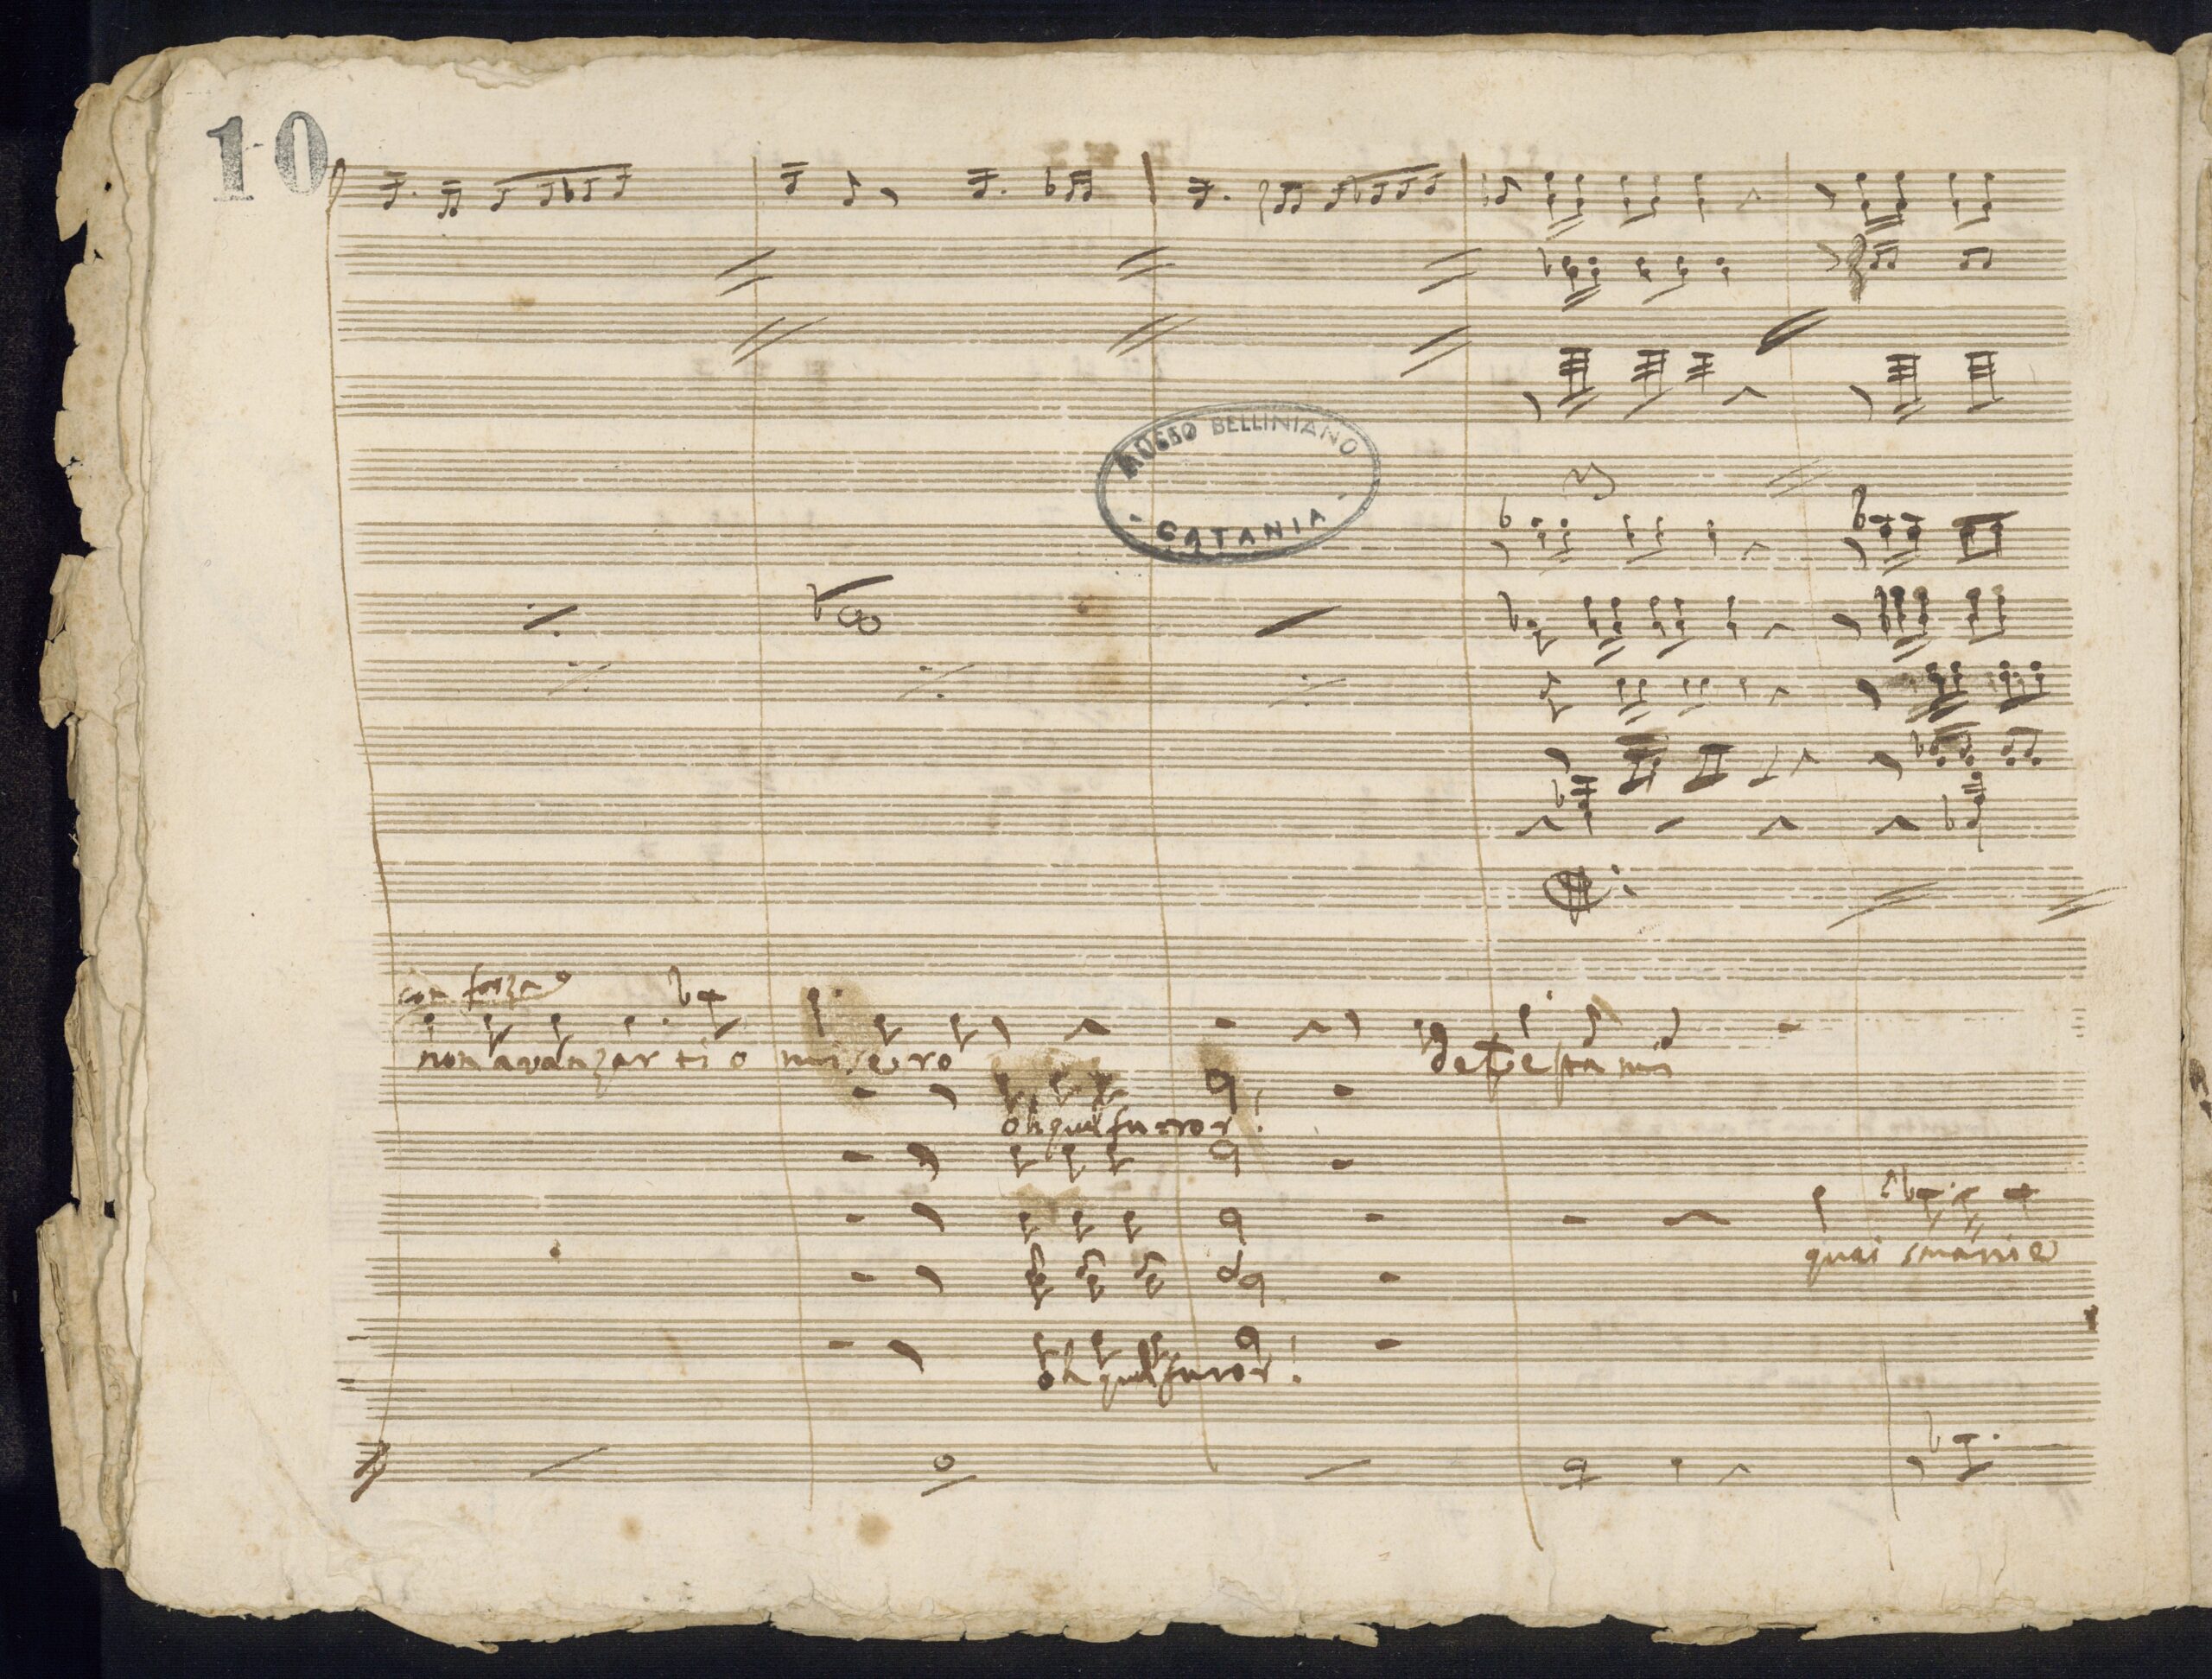 10
MUSEO BELLINIANO
- CATANIA -
con forza
non avanzar ti o misero detestami
oh qual furor!
quai smanie
oh qual furor!